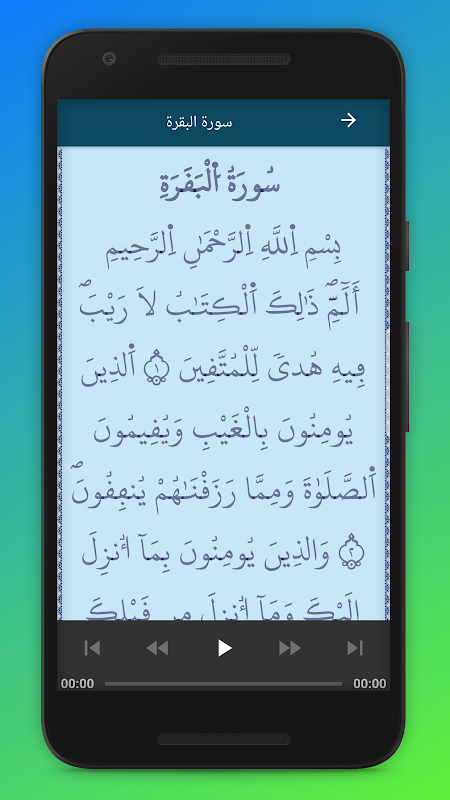 سورة البقرة
سُورَةُ اُ۬لْبَقَرَةِ
بِسْمِ اِ۬للَّهِ اِ۬لرَّحْمَٰنِ اِ۬لرَّحِيمِ
أَلَٓمِّٓۖ ذَٰلِكَ اَ۬لْكِتَٰبُ لَا رَيْبَۖ
فِيهِ هُدىٗ لِّلْمُتَّقِينَ ١ اَ۬لذِينَ
يُومِنُونَ بِالْغَيْبِ وَيُقِيمُونَ
اَ۬لصَّلَوٰةَ وَمِمَّا رَزَقْنَٰهُمْ يُنفِقُونَۖ
٢ وَالذِينَ يُومِنُونَ بِمَآ أُنزِلَ
إِلَيْكَ وَمَآ أُنزِلَ مِن قَبْلِكَ
00:00 00:00